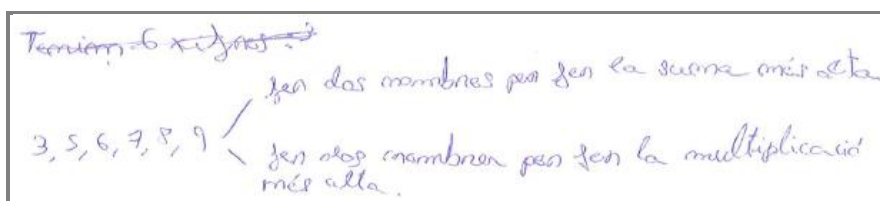 Teniem 6 xifres:
fer dos nombres per fer la suma més alta
3, 5, 6, 7, 8, 9
fer dos nombres per fer la multiplicació
més alta.